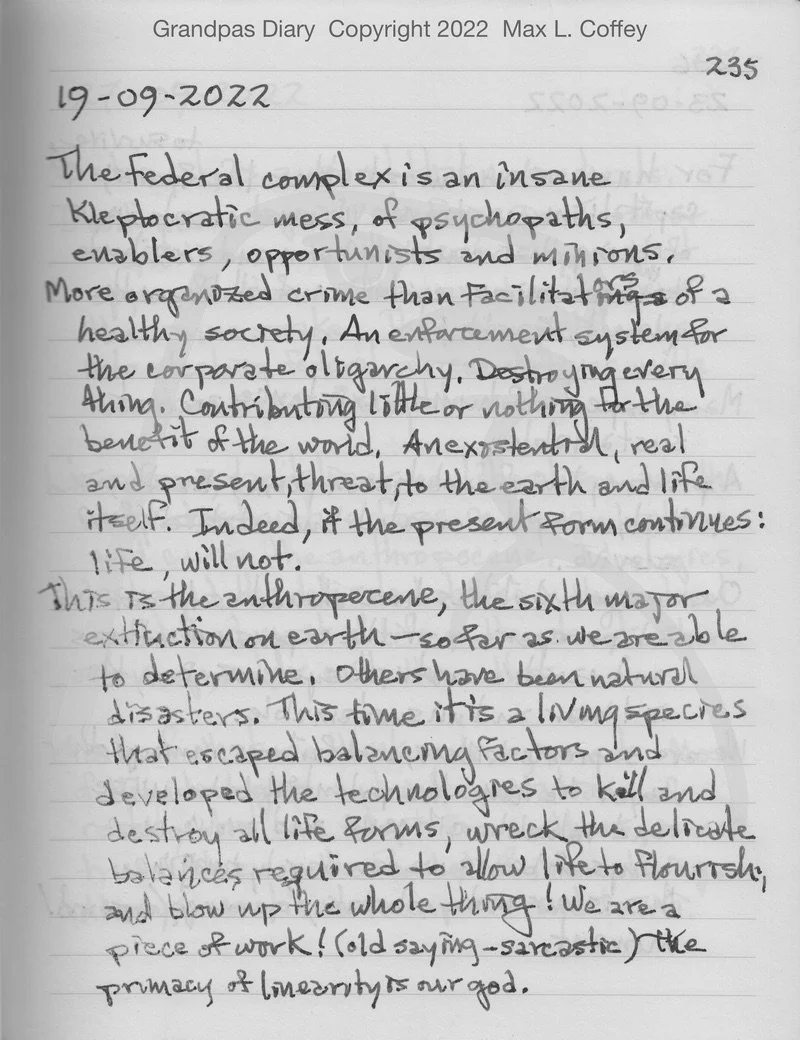 Grandpas Diary Copyright 2022 Max L. Coffey
235
19-09-2022
The Federal complex is an insane
Kleptocratic mess, of psychopaths,
enablers, opportunists and minions.
More organized crime than Facilitators of a
healthy society. An enforcement system for
the corporate oligarchy. Destroying every
thing. Contributing little or nothing for the
benefit of the world. An existential, real
and present, threat, to the earth and life
itself. Indeed, if the present form continues:
life, will not.
This is the anthropocene, the sixth major
extinction on earth—so far as we are able
to determine. Others have been natural
disasters. This time it is a living species
that escaped balancing factors and
developed the technologies to kill and
destroy all life forms, wreck the delicate
balances required to allow life to flourish;
and blow up the whole thing! We are a
piece of work! (old saying-sarcastic) the
primacy of linearity is our god.